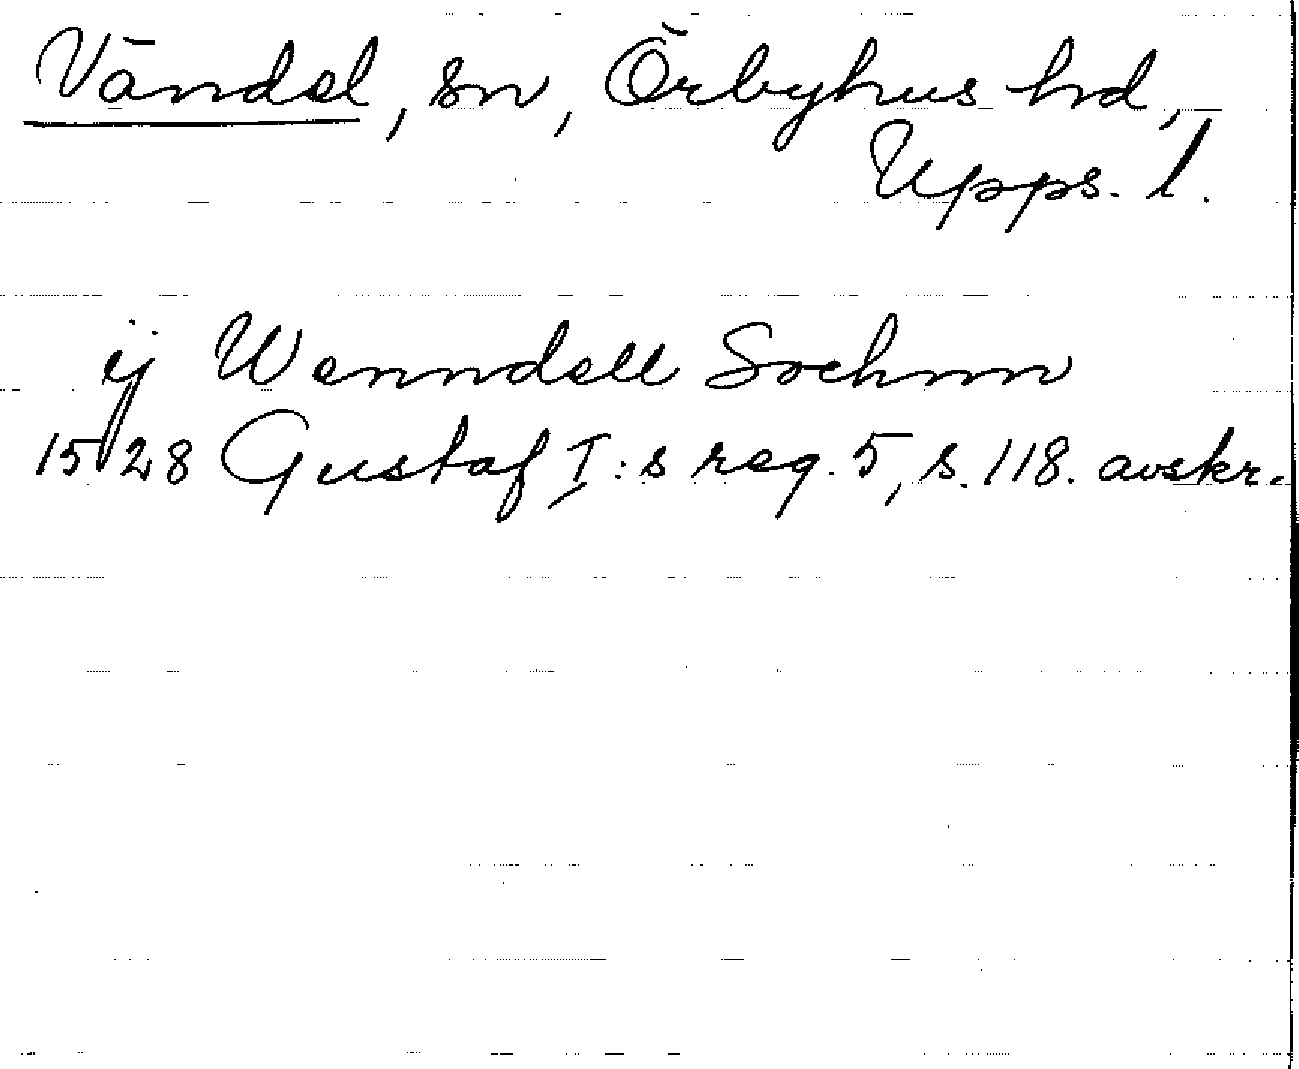 Vändel, sn, Örbyhus hd,
Upps. l.
ij Wenndell Sochnn
1528 Gustaf I:s reg. 5, s. 118. avskr.